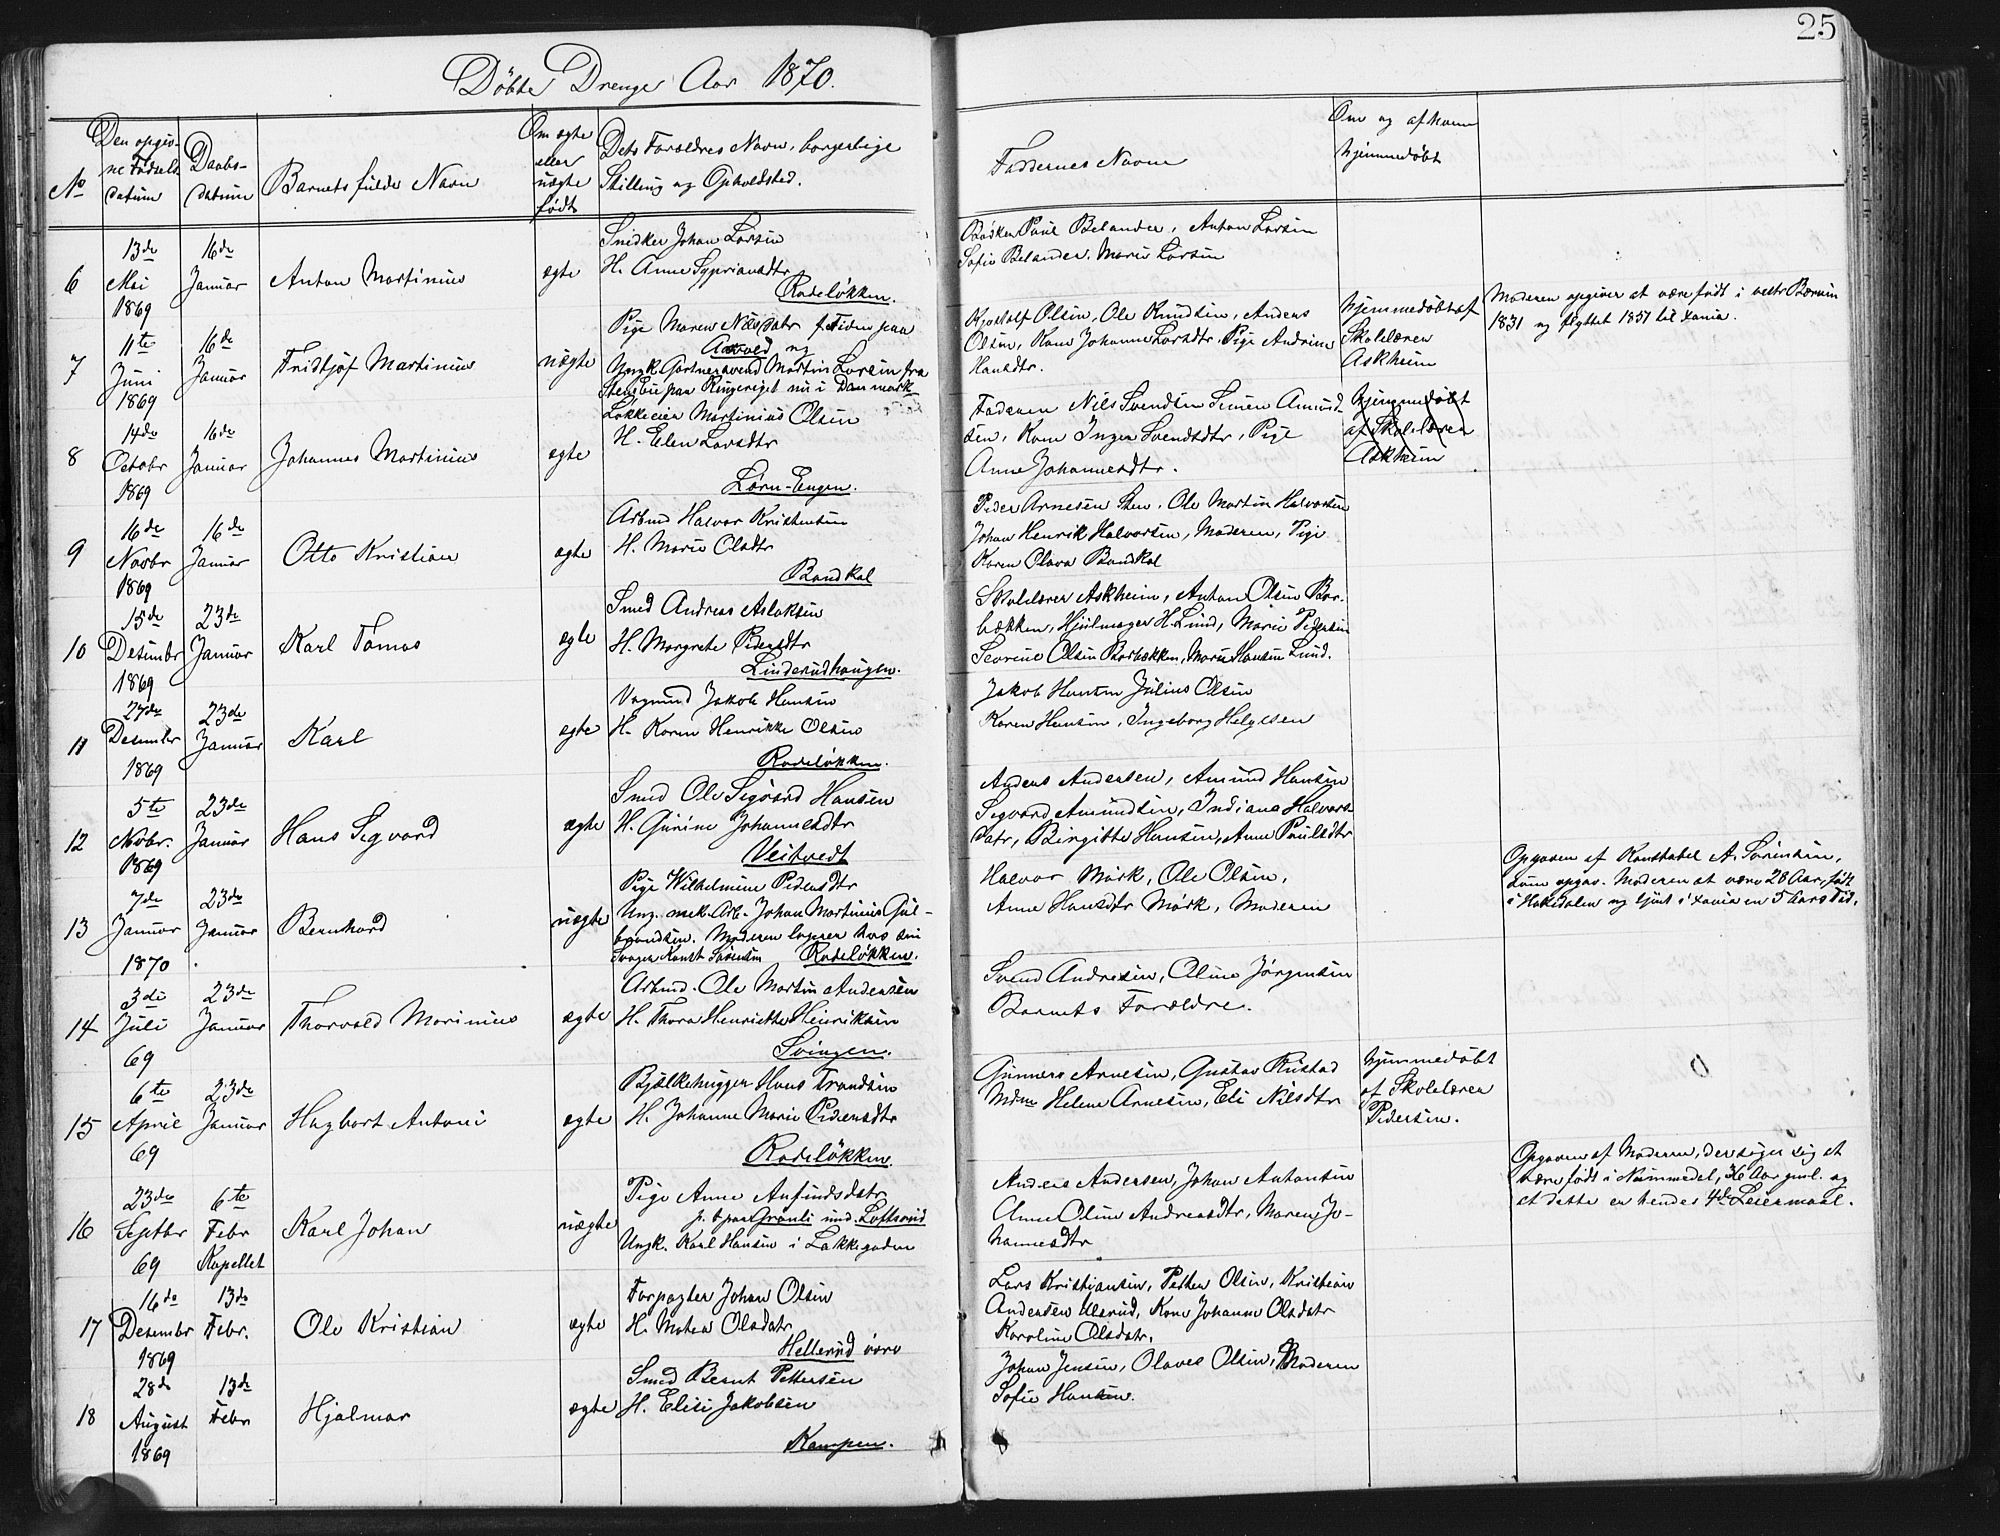 25
Döbte Drenge Aar 1870.
No
Den opgiv-
ne Fødsels
datum
Daabs-
datum
Barnets fulde Navn
Om ægte
eller
uægte
født
Dets Forældres Navn, borgerlige
Stilling og Opholdsted.
Faddernes Navne
Om og af hvem
hjemmedøbt
6
13de
Mai
1869
16de
Januar
Anton Martinius
ægte
Snidker Johan Larsen
H. Anne Sypriansdtr
Rodeløkken.
Bødker Paul Belander, Anton Larsen
Sofie Belander. Marie Larsen
7
11te
Juni
1869
16de
Januar
Fridtjof Martinius
uægte
Pige Maren Nilsdatr f. Tiden paa
Aavold og
Ungk. Gartnersvend Martin Larsen fra
Stensbu paa Ringeriget nu i Danmark
Olsen, Ole Knudsen, Anders
Olsen, Kone Johanne Larsdtr. Pige Andrine
Hansdtr.
hjemmedøbt af
Skolelærer
Askheim
Moderen opgiver at være født i vestr Bærum
1831 og flyttet 1851 til Xania.
8
14de
Octobr
1869
16de
Januar
Johannes Martinius
ægte
Løkkeeier Martinius Olsen
H. Elen Larsdtr
Lørn-Engen.
Faderen Nils Svendsen Simen Amund-
sen, Kone Inger Svendsdtr, Pige
Anne Johannesdtr.
hjemmedøbt
af Skolelærer
Askheim
9
16de
Novbr
1869
16de
Januar
Otto Kristian
ægte
Arbmd Halvor Kristensen
H. Marie Olsdtr
Bandkal
Peder Arnesen Sten. Ole Martin Halvorsen
Johan Henrik Halvorsen, Moderen, Pige
Karen Olava Bandkal
10
15de
Desembr
1869
23de
Januar
Karl Tomas
ægte
Smed Andreas Aslaksen
H. Margrete Pedersdtr
Linderudhaugen.
Skolelærer Askheim, Anton Olsen Bor-
bækken, Hjulmager H. Lund, Marie Pedersen
Severine Olsen Borbækken, Marie Hansen Lund.
11
27de
Desembr
1869
23de
Januar
Karl
ægte
Vognmd Jakob Hansen
H. Karen Henrikke Olsen
Rodeløkken.
Jakob Hansen Julius Olsen
Karen Hansen, Ingeborg Helgesen
12
5te
Novbr.
1869
23de
Januar
Hans Segvard
ægte
Smed Ole Sigvard Hansen
H. Gurine Johannesdtr
Veitvedt
Anders Andersen, Amund Hansen
Segvard Amundsen, Indiana Halvors-
datr, Birgitte Hansen, Anne Paulsdtr
13
7de
Januar
1870
23de
Januar
Bernhard
uægte
Pige Wilhelmine Pedersdtr
Ung. mek. Arb. Johan Martinius Gul-
brandsen. Moderen logerer hos sin
Svoger Konst Sørensen Rodeløkken.
Halvor Mørk, Ole Olsen,
Anne Hansdtr Mørk, Moderen
Opgaven af Konstabel A. Sørensen,
som opgav. Moderen at være 28 Aar, født
i Hakedalen og tjent i Xania en 5 Aars Tid.
14
3die
Juli
69
23de
Januar
Thorvald Marinius
ægte
Arbmd. Ole Martin Andersen
H. Thora Henriette Henriksen
Svingen.
Svend Andresen, Oline Jørgensen
Barnets Forældre.
15
6te
April
69
23de
Januar
Hagbart Antoni
ægte
Bjelkehugger Hans Trondsen
H. Johanne Marie Pedersdtr
Rodeløkken.
Gunnero Arnesen, Gustav Rustad
Mdme Helene Arnesen, Eli Nilsdtr
hjemmedøbt
af Skolelærer
Pedersen.
0
16
23de
Septbr
69
6te
Febr
Kapellet
Karl Johan
uægte
Pige Anne Anfindsdatr
p. t. paa Grønli und. Loftsrud
Ungk. Karl Hansen i Lakkegaden
Anders Andersen, Johan Antonsen
Anne Oline Andreasdtr, Maren Jo-
hannesdtr
Opgaven af Moderen, der siger sig at
være født i Nummedal, 36 Aar gml. og
at dette er hendes 4de Leiermaal.
17
16de
Desembr
1869
13de
Febr.
Ole Kristian
ægte
Forpagter Johan Olsen
H. Matea Olsdatr
Hellerud øvre
Lars Kristiansen, Petter Olsen, Kristian
Andersen Ulsrud, Kone Johanne Olsdatr
Karoline Olsdatr.
18
28de
August
1869
13de
Febr
Hjalmar
ægte
Smed Bernt Pettersen
H. Elise Jakobsen
Kampen.
Johan Jensen, Olaves Olsen, Moderen
Sofie Hansen.